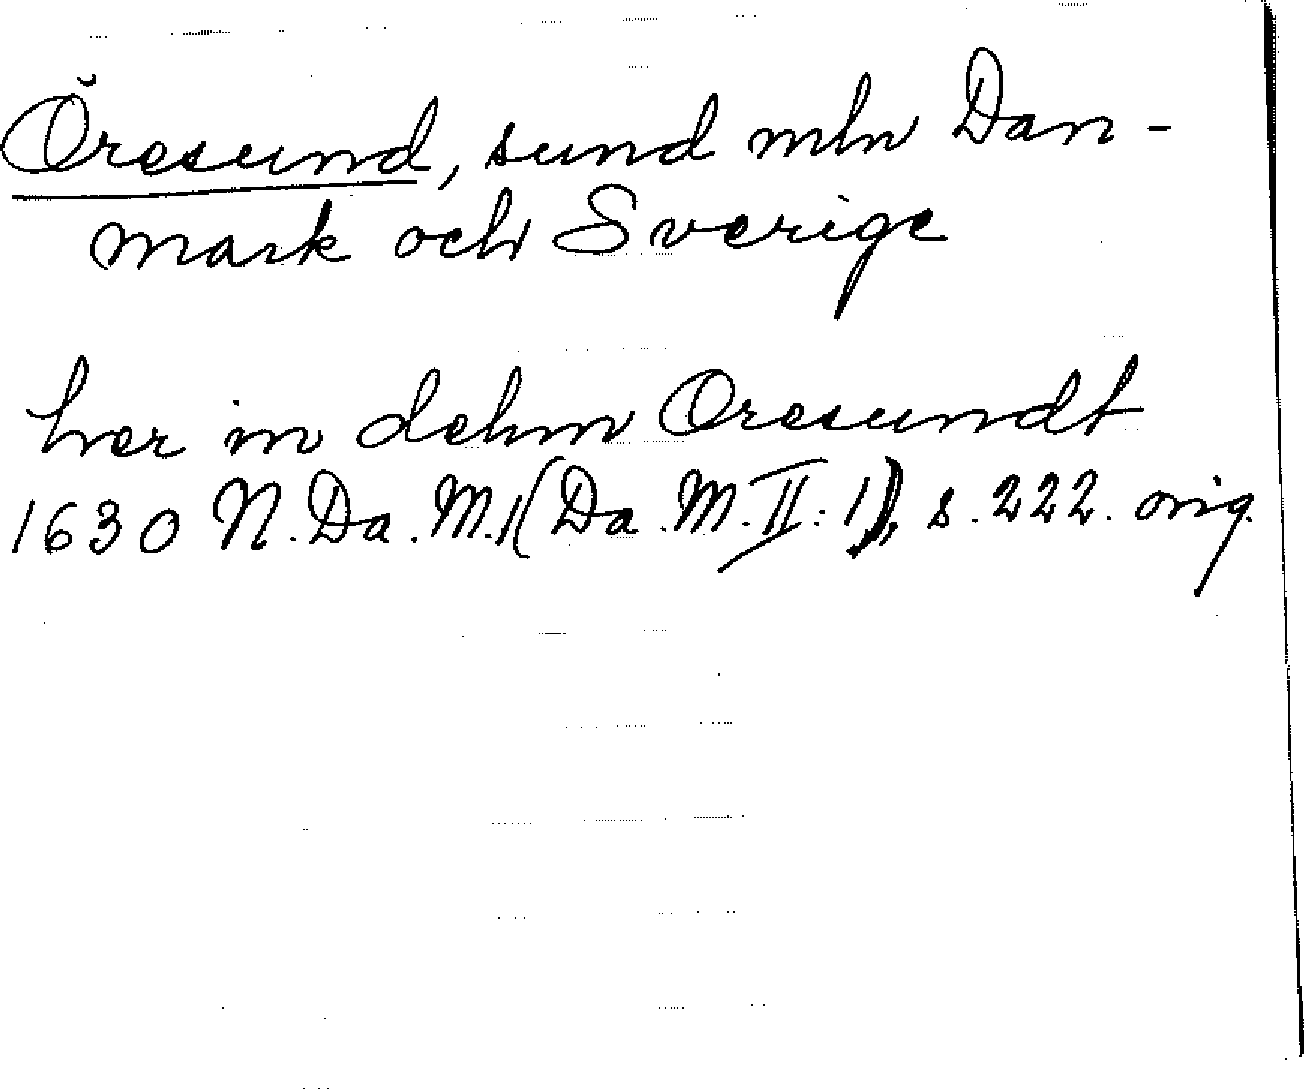 Öresund, sund mln Dan-
mark och Sverige
her in dehm Oresundt
1630 N. Da. M. 1 (Da. M. II: 1), s. 222. orig.